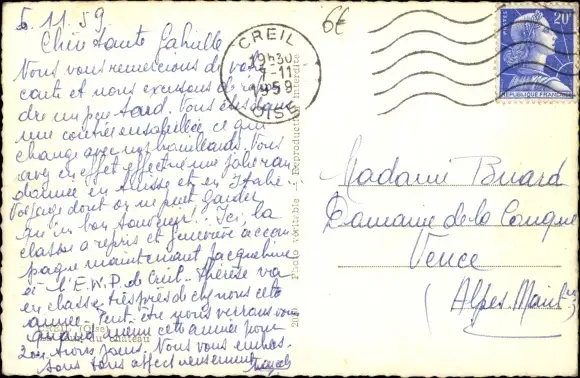 5.11.59
Chère tante Gabrielle
Nous vous remercions de votre
carte et nous excusons de répon
dre un peu tard. Vous êtes dans
une contrée ensoleillée ce qui
change avec nos brouillards. Vous
avez en effet effectué une jolie ran
donnée en Suisse et en Italie
Voyage dont on ne peut garder
qu'un bon souvenir! Ici, la
classe a repris et Geneviève accom
pagne maintenant Jacqueline
à l'E.N.P. de Creil. Thérèse va
en classe très près de chez nous cette
année. Peut-être nous verrons vous
quand même cette année pour
2 ou trois jours. Nous vous embras-
sons tous affectueusement
CREIL
19h30
7-11
1959
OISE
6€
20F
REPUBLIQUE FRANCAISE
Photo véritable - Reproduction interdite
(Oise)
du Château
Madame Briard
Domaine de la Conque
Vence
(Alpes Marit)